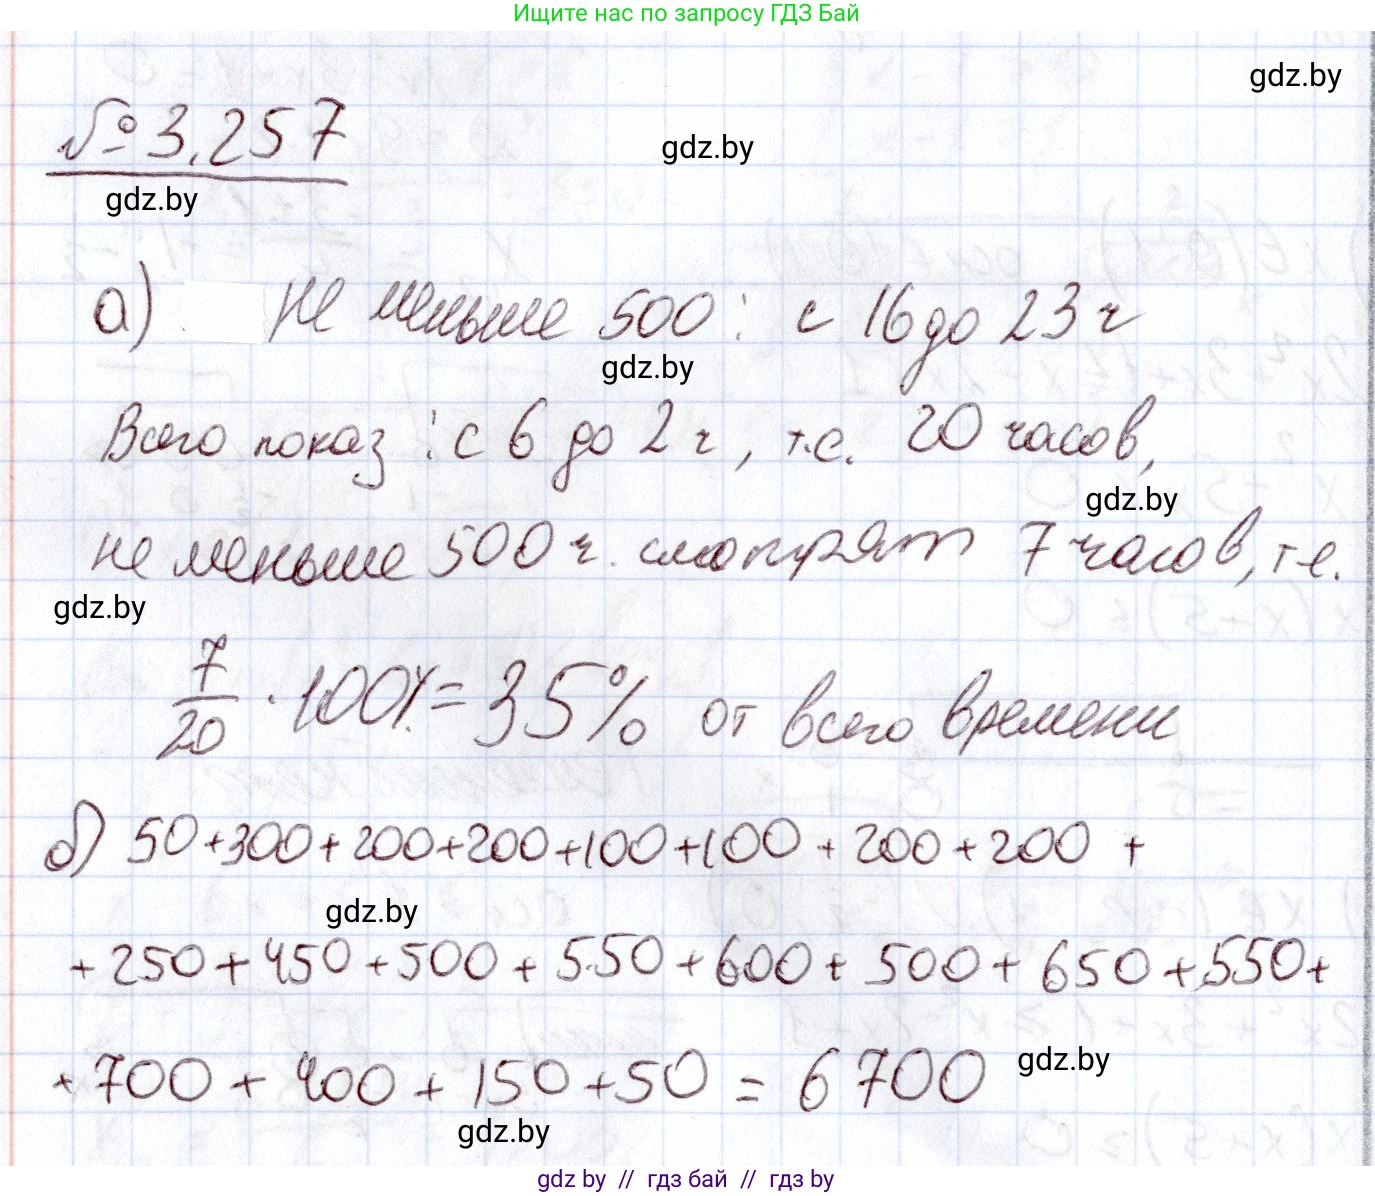 Ищите нас по запросу ГДЗ Бай
gdz.by
№ 3.257
gdz.by
gdz.by
а) Не меньше 500: с 16 до 23 ч
gdz.by
Всего показ: с 6 до 2 ч, т.е. 20 часов,
gdz.by
не меньше 500 ч. смотрят 7 часов, т.е.
gdz.by
7/20 · 100% = 35% от всего времени
б) 50+300+200+200+100+100+200+200+
gdz.by
+250+450+500+550+600+500+650+550+
+700+400+150+50=6700
gdz.by
gdz.by
gdz by // гдз бай // гдз by